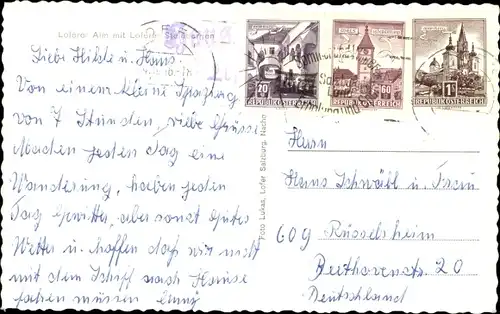 Loferer Alm mit Loferer Steinbergen
Liebe Hilde u. Hans.
Von einem kleine Spazierg
von 7 Stunden, viele Grüsse
Machen jeden Tag eine
Wanderung, haben jeden
Tag Gewitter, aber sonst gutes
Wetter u. hoffen daß wir nicht
mit dem Schiff nach Hause
fahren müssen
Foto Lukas, Lofer, Salzburg,
20
REPUBLIK ÖSTERREICH
60
REPUBLIK ÖSTERREICH
1S
REPUBLIK ÖSTERREICH
Herrn
Hans Schwäbl u. Frau
609 Rüsselsheim
Beethovenstr. 20
Deutschland